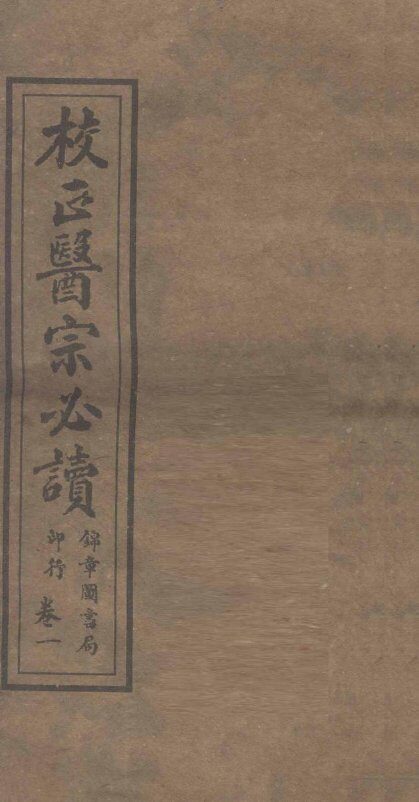 校正醫宗必讀
錦章圖書局
印行
卷一